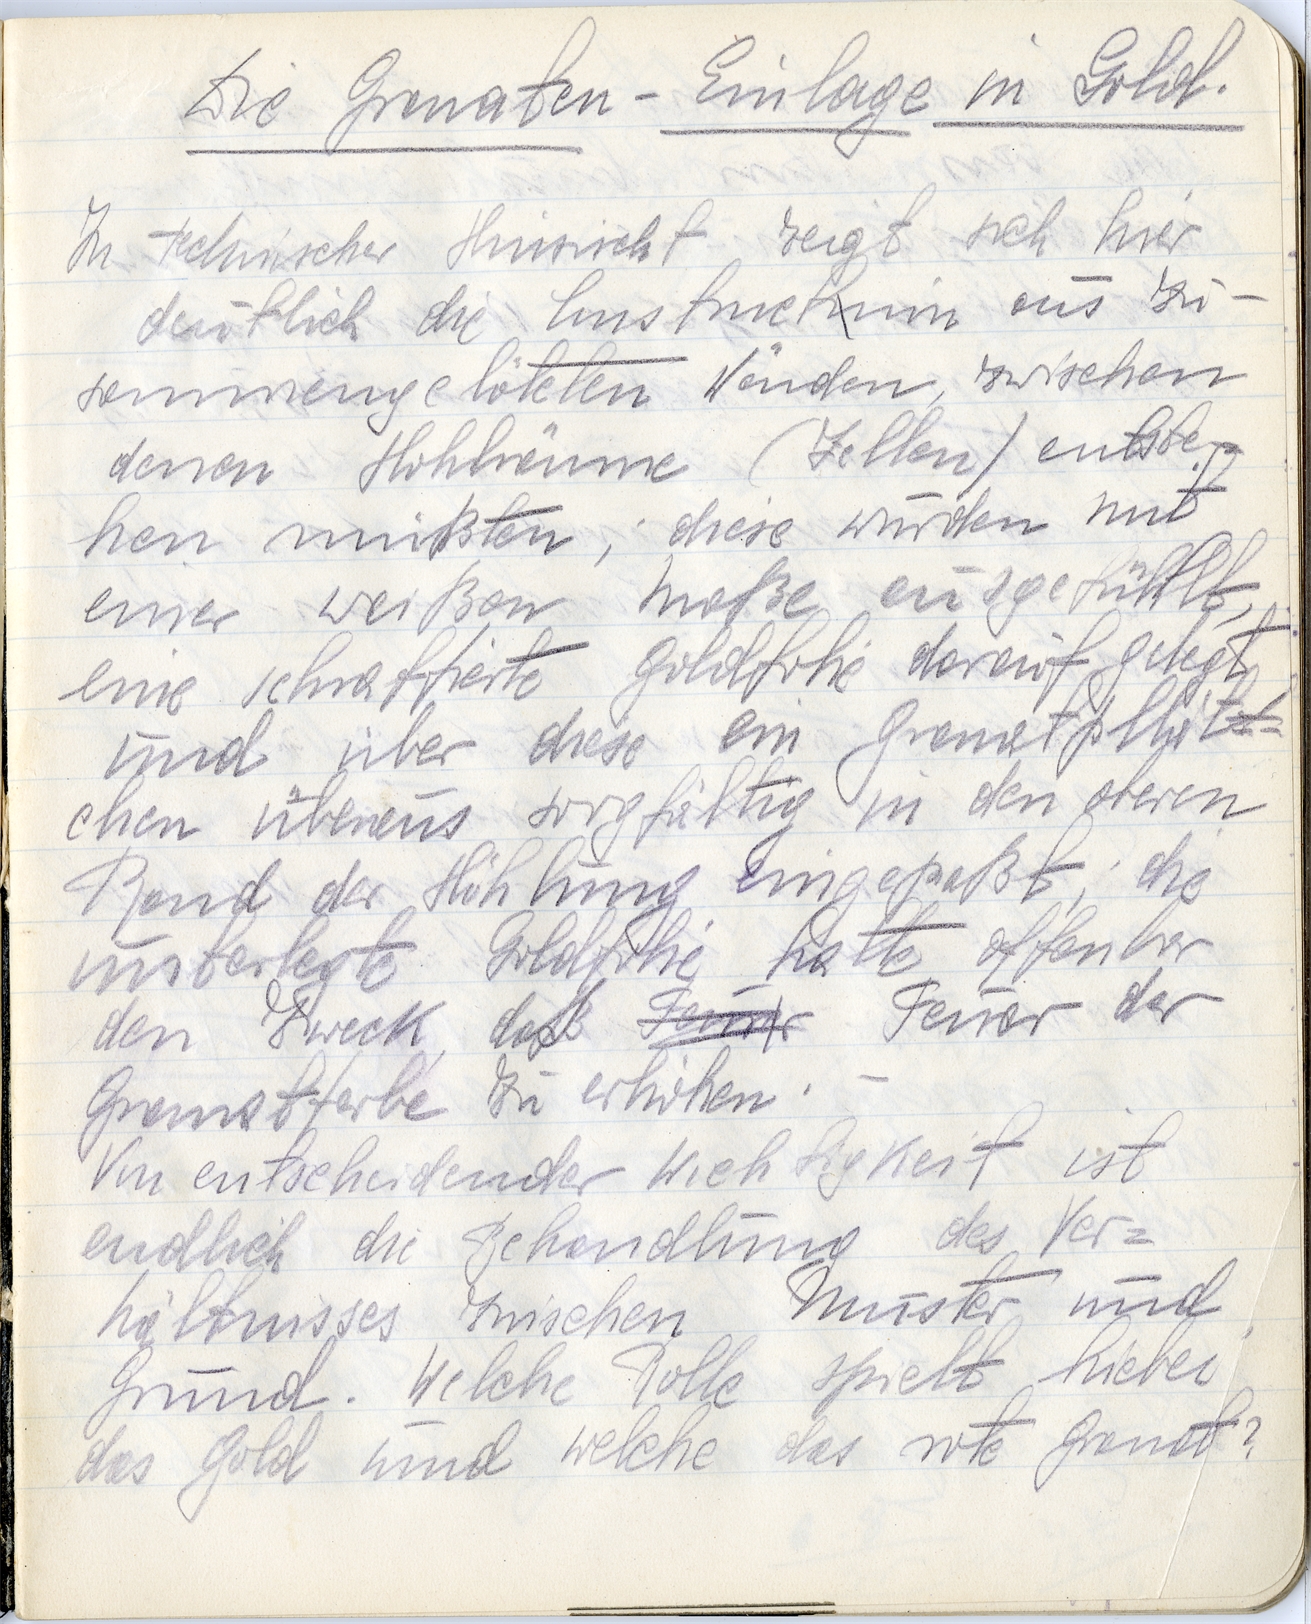 Die Granaten - Einlage in Gold.
In technischer Hinsicht zeigt sich hier
deutlich die Construction aus zu-
sammengelöteten Wänden, zwischen
denen Hohlräume (Zellen) entste-
hen mußten; diese wurden mit
einer weißen Maße ausgefüllt,
eine schraffierte Goldfolie darauf gelegt
und über diese ein Granatplätt=
chen überaus sorgfältig in den oberen
Rand der Höhlung eingepaßt; die
unterlegte Goldfolie hatte offenbar
den Zweck, das Feuer der
Granatfarbe zu erhöhen. –
Von entscheidender Wichtigkeit ist
endlich die Behandlung des Ver=
hältnisses zwischen Muster und
Grund. Welche Rolle spielt hiebei
das Gold und welche das rote Granat?